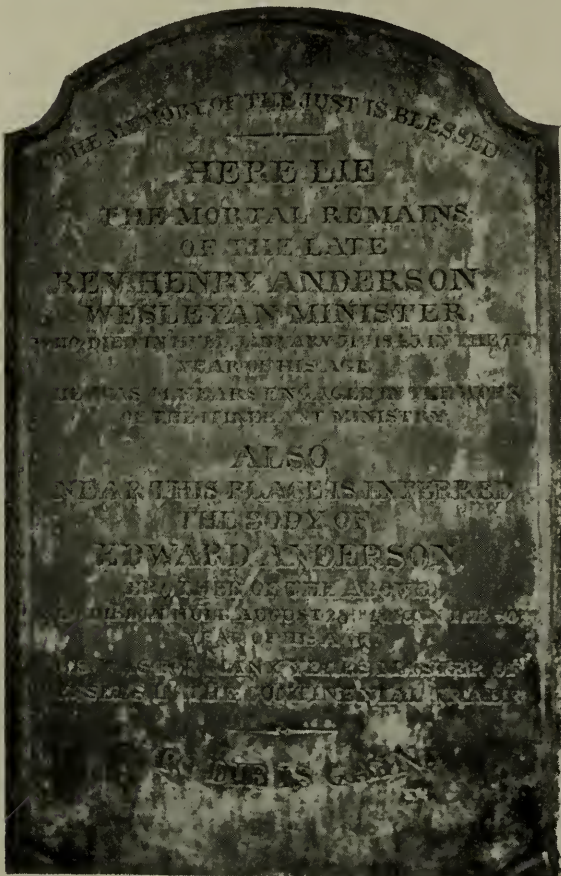 THE MEMORY OF THE JUST IS BLESSED
HERE LIE
THE MORTAL REMAINS
OF THE LATE
REV. HENRY ANDERSON
WESLEYAN MINISTER,
WHO DIED IN HULL, JANUARY IN THE
YEAR OF HIS AGE
HE WAS YEARS ENGAGED IN THE WORK
OF THE ITINERANT MINISTRY.
ALSO
NEAR THIS PLACE IS INTERRED
THE BODY OF
EDWARD ANDERSON,
BROTHER OF THE ABOVE,
DIED IN HULL, AUGUST IN THE
YEAR OF HIS AGE
MANY YEARS MASTER OF
VESSELS IN THE CONTINENTAL TRADE.
TO DIE IS GAIN